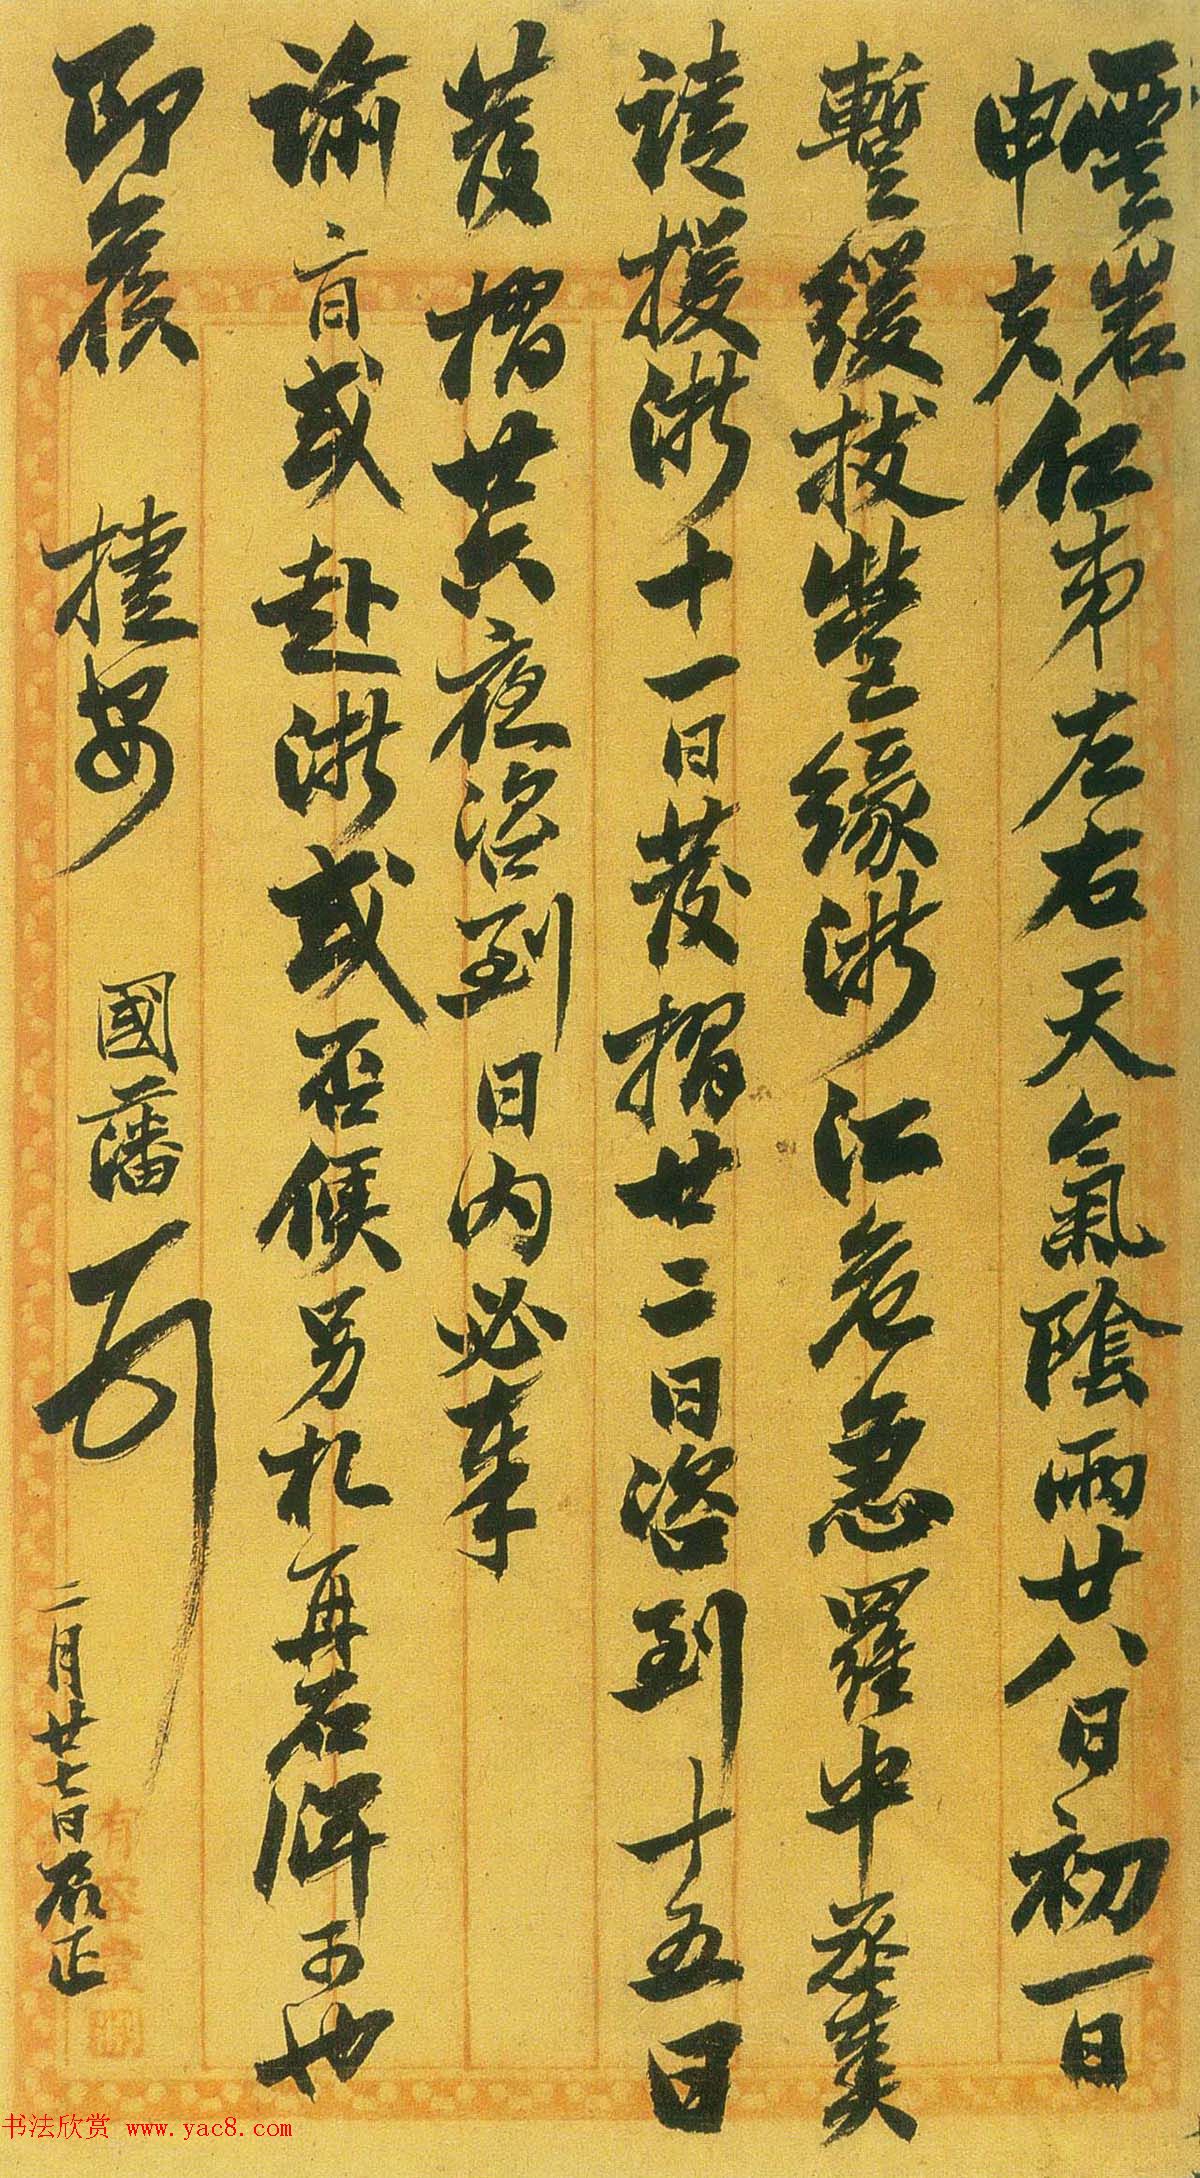 雲岩
申夫仁弟左右天氣陰雨廿八日初一日
暫緩拔營緣浙江危急羅中丞奏
請援浙十一日發摺廿二日咨到十五日
發摺昨夜咨到日內必奉
諭旨或赴浙或否候另札再若拜可也
即候 捷安 國藩 二月廿七日辰正
書法欣賞 www.yac8.com